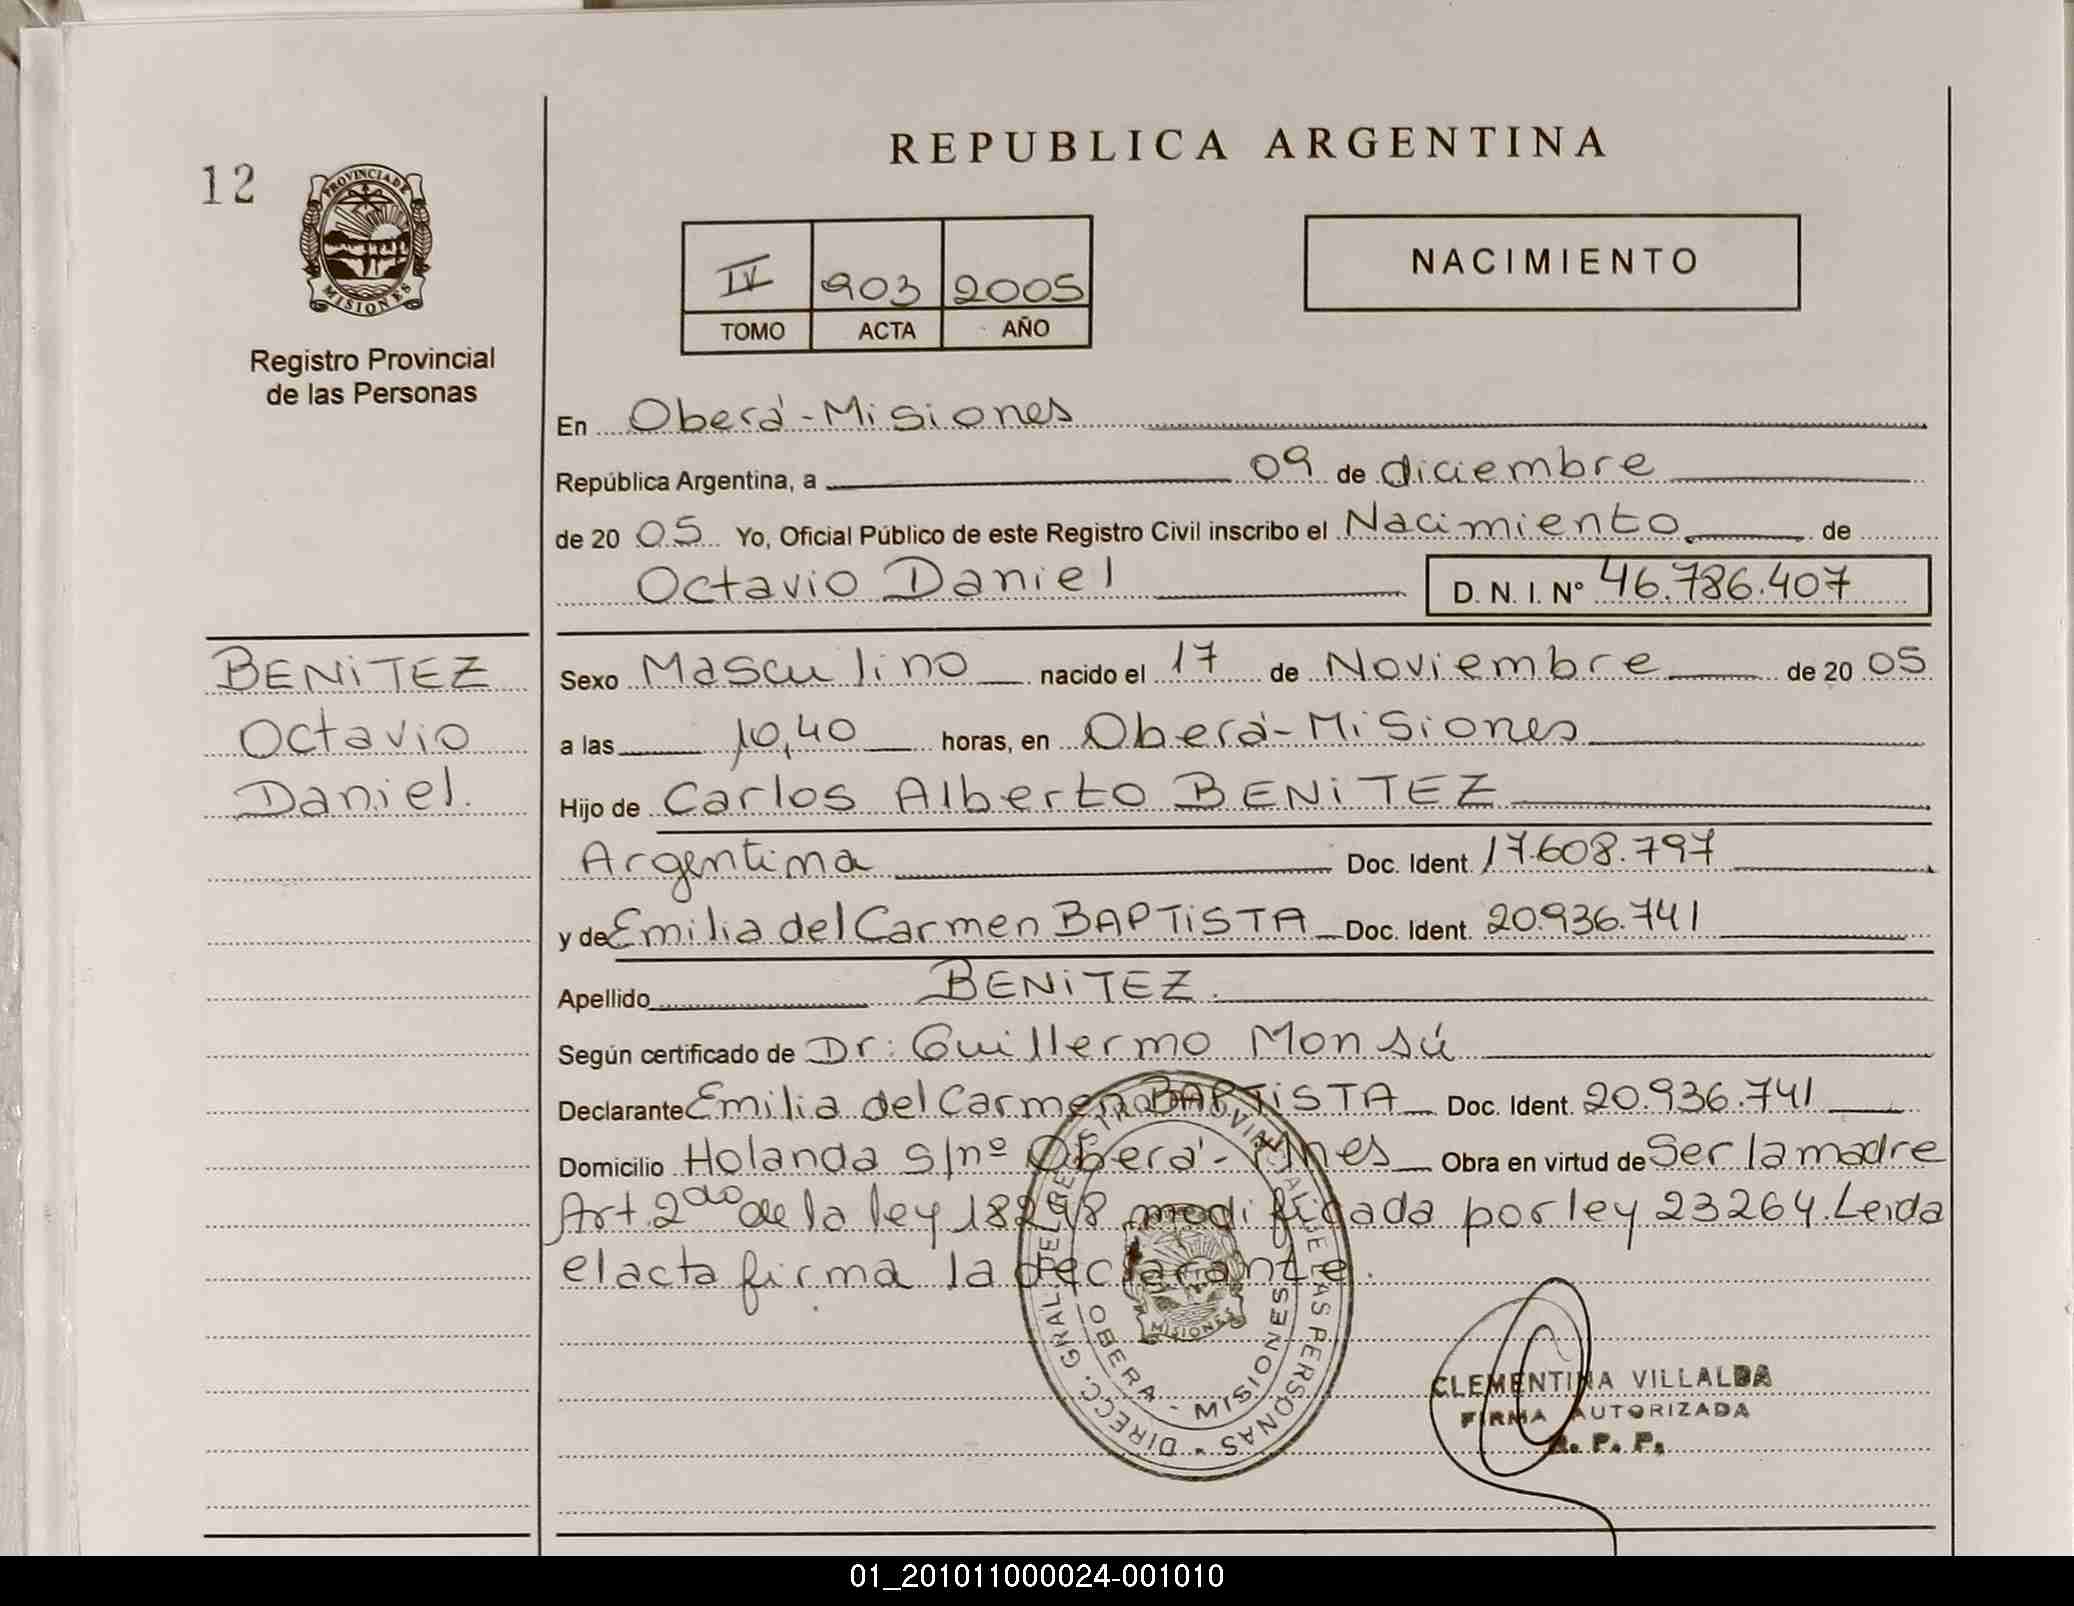 12
PROVINCIA DE
MISIONES
Registro Provincial
de las Personas
REPUBLICA ARGENTINA
IV 903 2005
TOMO ACTA AÑO
NACIMIENTO
En Oberá-Misiones
República Argentina, a 09 de diciembre
de 20 05 Yo, Oficial Público de este Registro Civil inscribo el Nacimiento de
Octavio Daniel D. N. I. Nº 46.786.407
BENITEZ
Octavio
Daniel.
Sexo Masculino nacido el 17 de Noviembre de 20 05
a las 10,40 horas, en Oberá-Misiones
Hijo de Carlos Alberto BENITEZ
Argentina Doc. Ident. 17.608.797
y de Emilia del Carmen BAPTISTA Doc. Ident. 20.936.741
Apellido BENITEZ.
Según certificado de Dr: Guillermo Monsú
Declarante Emilia del Carmen BAPTISTA Doc. Ident. 20.936.741
Domicilio Holanda s/nº Oberá-Mnes Obra en virtud de Ser la madre
Art 2do de la ley 18298 modificada por ley 23264. Leida
el acta firma la declarante.
DIRECC. GRAL. DEL REGISTRO PROVINCIAL DE LAS PERSONAS
OBERA - MISIONES
MISIONES
CLEMENTINA VILLALBA
FIRMA AUTORIZADA
R. P. P.
01_201011000024-001010